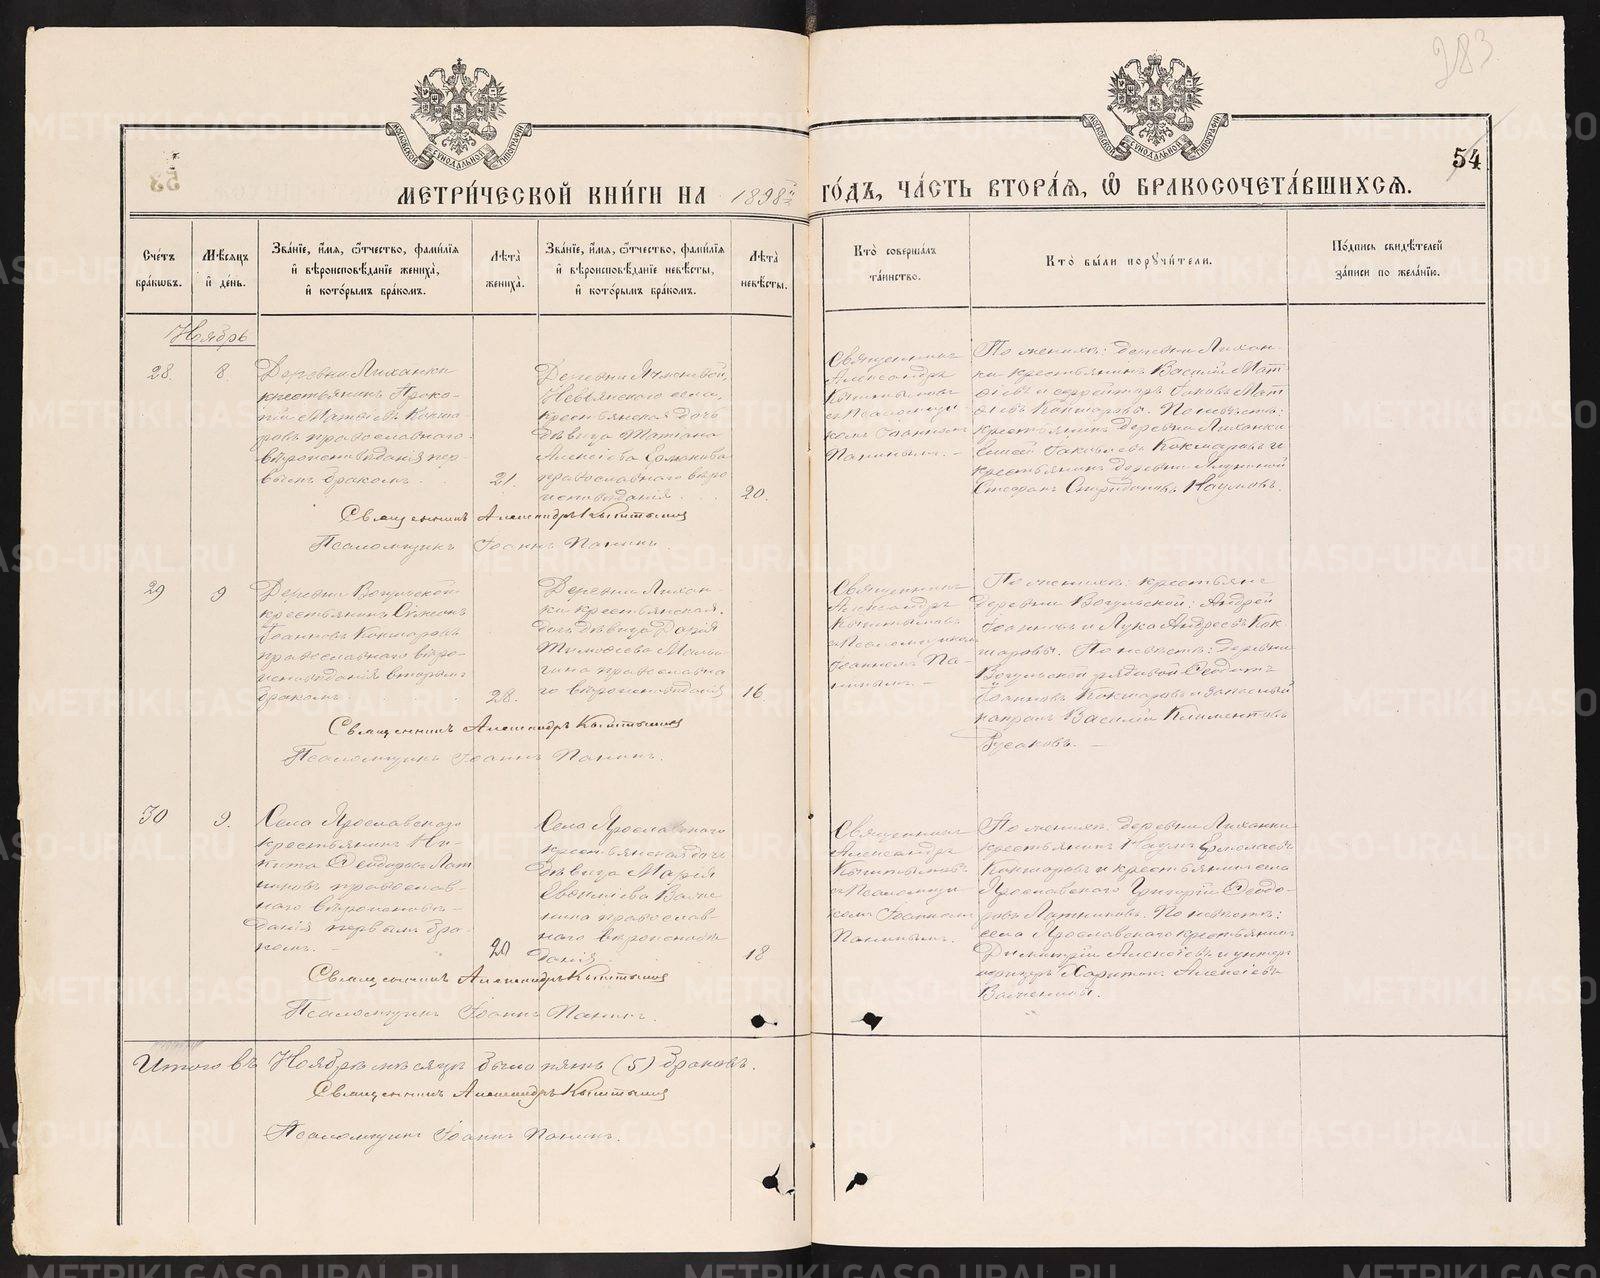 283
54
МЕТРИ́ЧЕСКОЙ КНИ́ГИ НА 1898й ГО́ДЪ, ЧА́СТЬ ВТОРА́Я, Ѡ҆ БРАКОСОЧЕТА́ВШИХСЯ.
Сче́тъ бра́кѡвъ.
Мѣ́сяцъ и҆ де́нь.
Зва́нїе, и҆́мя, ѻ҆́тчество, фамі́лїя и҆ вѣроисповѣ́данїе жениха̀, и҆ кото́рымъ бра́комъ.
Лѣ́та жениха̀.
Зва́нїе, и҆́мя, ѻ҆́тчество, фамі́лїя и҆ вѣроисповѣ́данїе невѣ́сты, и҆ кото́рымъ бра́комъ.
Лѣ́та невѣ́сты.
Кто̀ соверша́лъ та́инство.
Кто̀ бы́ли пору́чи́тели.
По́дпись свидѣ́телей за́писи по жела́нїю.
Ноябрь
28.
8
Деревни Лиханки
крестьянинъ Проко-
пій Матѳіевъ Кокша-
ровъ православнаго
вѣроисповѣданія пер-
вымъ бракомъ.
21.
Деревни
Невьянскаго села,
крестьянская дочь
дѣвица Татіана
Алексіева
православнаго вѣро
исповѣданія.
20.
Священникъ
Александръ
съ Псаломщи
комъ Іоанномъ
Панинымъ. —
По женихѣ: деревни Лихан-
ки крестьянинъ Василій Мат-
ѳіевъ и ефрейторъ Іаковъ Мат
ѳіевъ Кокшаровы. По невѣстѣ:
крестьянинъ деревни Лиханки
Елисей Іаковлевъ Кокшаровъ и
крестьянинъ деревни
Стефанъ Спиридоновъ Наумовъ.
Священникъ Александръ
Псаломщикъ Іоаннъ Панинъ.
29
9
Деревни Вогульской
крестьянинъ
Іоанновъ Кокшаровъ
православнаго вѣро-
исповѣданія вторымъ
бракомъ.
28.
Деревни Лихан-
ки крестьянская
дочь дѣвица Дарія
Тимоѳеева
православна
го вѣроисповѣданія
16
Священникъ
Александръ
съ Псаломщикомъ
Іоанномъ Па-
нинымъ. —
По женихѣ: крестьяне
деревни Вогульской: Андрей
Іоанновъ и Лука Андреевъ Кок-
шаровы. По невѣстѣ: деревни
Вогульской рядовой Ѳеодотъ
Іоанновъ Кокшаровъ и запасный
Василій Климентовъ
Русаковъ. —
Священникъ Александръ
Псаломщикъ Іоаннъ Панинъ.
30
9.
Села Ярославскаго
крестьянинъ Ни-
кита Ѳеодоровъ Лат
никовъ православ-
наго вѣроисповѣ-
данія первымъ бра-
комъ. —
20
Села Ярославскаго
крестьянская дочь
дѣвица Марія
православ-
наго вѣроисповѣ
данія.
18
Священникъ
Александръ
съ Псаломщи
комъ Іоанномъ
Панинымъ.
По женихѣ: деревни Лиханки
крестьянинъ Наумъ Ермолаевъ
Кокшаровъ и крестьянинъ села
Ярославскаго Григорій Ѳеодо-
ровъ Латниковъ. По невѣстѣ:
села Ярославскаго крестьянинъ
Димитрій Алексіевъ и унтеръ
офицеръ Харитонъ Алексіевъ
Священникъ Александръ
Псаломщикъ Іоаннъ Панинъ.
Итого въ Ноябрѣ мѣсяцѣ было пять (5) браковъ.
Священникъ Александръ
Псаломщикъ Іоаннъ Панинъ.
METRIKI.GASO-URAL.RU